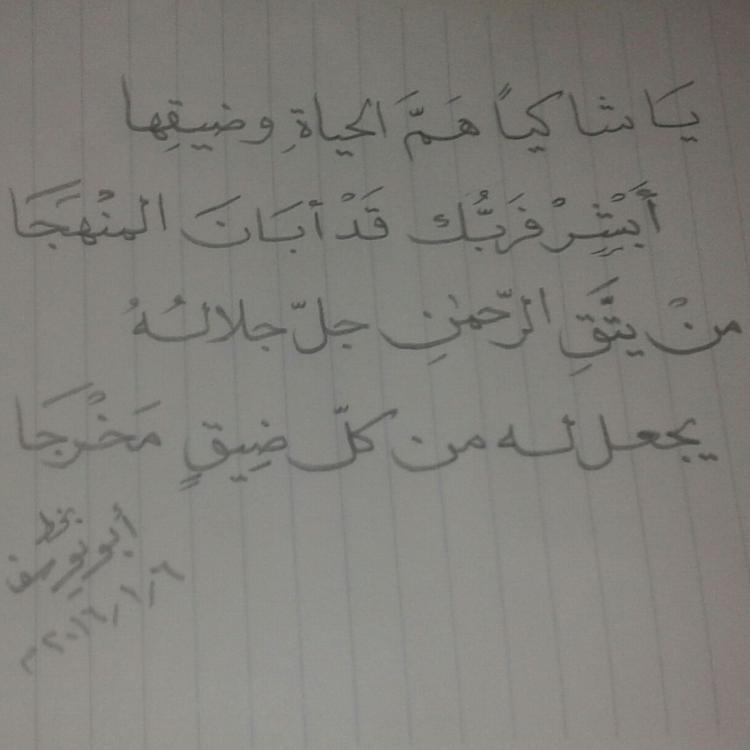 يَا شاكياً هَمَّ الحياةِ وضيقِها
أَبْشِرْ فَرَبُّك قَدْ أبَانَ المنْهَجَا
منْ يتَّقِ الرّحمٰنِ جلّ جلالُهُ
يجعل له من كلّ ضِيقٍ مَخْرَجَا
بخط
أبو يوسف
٢٠١٦/١/٦م